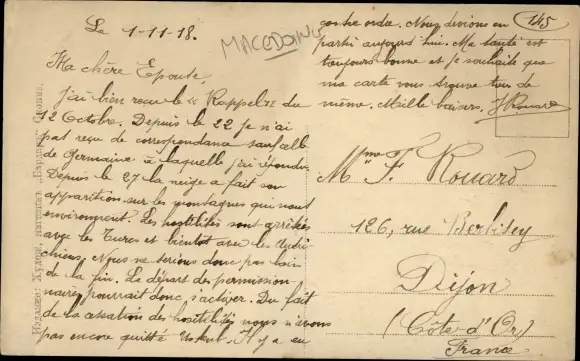 Le 1-11-18.
MACEDOINE
Ma chère Epouse,
J'ai bien reçu le "Rappel" du
12 Octobre. Depuis le 22 je n'ai
pas reçu de correspondance sauf celle
de Germaine à laquelle j'ai répondu.
Depuis le 27 la neige a fait son
apparition sur les montagnes qui nous
environnent. Les hostilités sont arrêtées
avec les Turcs et bientôt avec les Autri-
chiens. Nous ne serions donc pas loin
de la fin. Le départ des permission-
naires pourrait donc s'activer. Du fait
de la cessation des hostilités nous n'avons
pas encore quitté Uskub. Il y a eu
contre ordre. Nous devions en
partir aujourd'hui. Ma santé est
toujours bonne et je souhaite que
ma carte vous trouve tous de
même. Mille baisers. F Rouard
145
Mme F. Rouard
126, rue Berbisey
Dijon
(Côte d'Or)
France